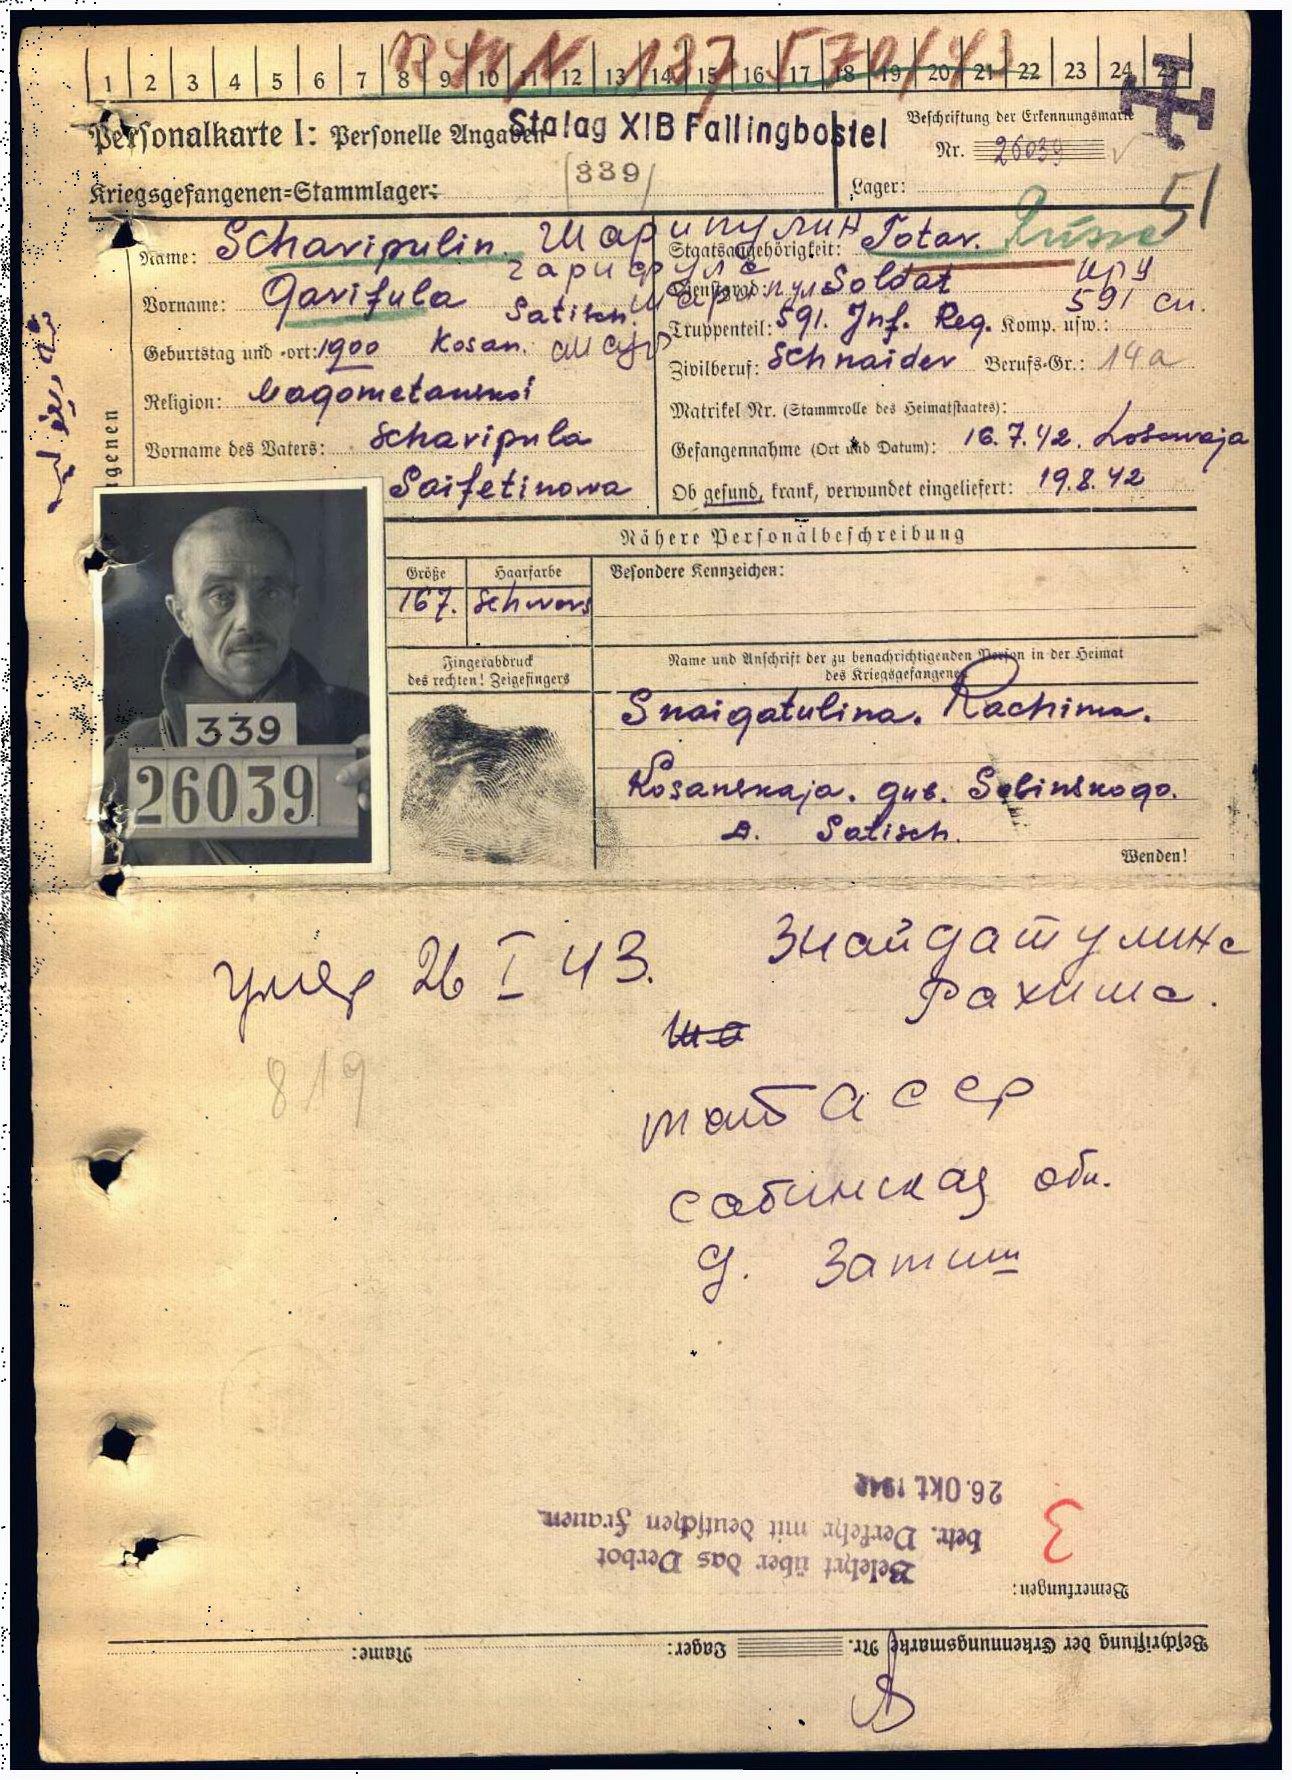 1 2 3 4 5 6 7 8 9 10 11 12 13 14 15 16 17 18 19 20 21 22 23 24 25
Personalkarte I: Personelle Angaben
Stalag XIB Fallingbostel
Beschriftung der Erkennungsmarke
Nr. 26039
339
Kriegsgefangenen-Stammlager:
Lager:
51
Name: Scharipulin. Шарипулин
Staatsangehörigkeit: Totar. Russe
Vorname: Garifula
гарифула
Dienstgrad: Soldat
Satisch.
Truppenteil: 591. Inf. Reg. Komp. usw.:
591 сп.
Geburtstag und -ort: 1900 Kosan.
Zivilberuf: Schnaider Berufs-Gr.: 14a
Religion: Magometanskoi
Matrikel Nr. (Stammrolle des Heimatstaates):
Vorname des Vaters: Scharipula
Gefangennahme (Ort und Datum): 16.7.42. Losowaja
Saifetinowa
Ob gesund, krank, verwundet eingeliefert: 19.8.42
Nähere Personalbeschreibung
Größe Haarfarbe Besondere Kennzeichen:
167. Schwors
Fingerabdruck
des rechten! Zeigefingers
Name und Anschrift der zu benachrichtigenden Person in der Heimat
des Kriegsgefangenen
339
26039
Snaigatulina. Rachima.
Kosanskaja. gub. Sobinskogo.
д. Satisch.
Wenden!
умер 26 I 43.
Знайдатулина
Рахима.
819
тат АССР
сабинская обл.
д. Затиш
26. Okt 1942
betr. Verkehr mit deutschen Frauen
Belehrt über das Verbot
3
Bemerkungen:
Beschriftung der Erkennungsmarke Nr. Lager: Name: